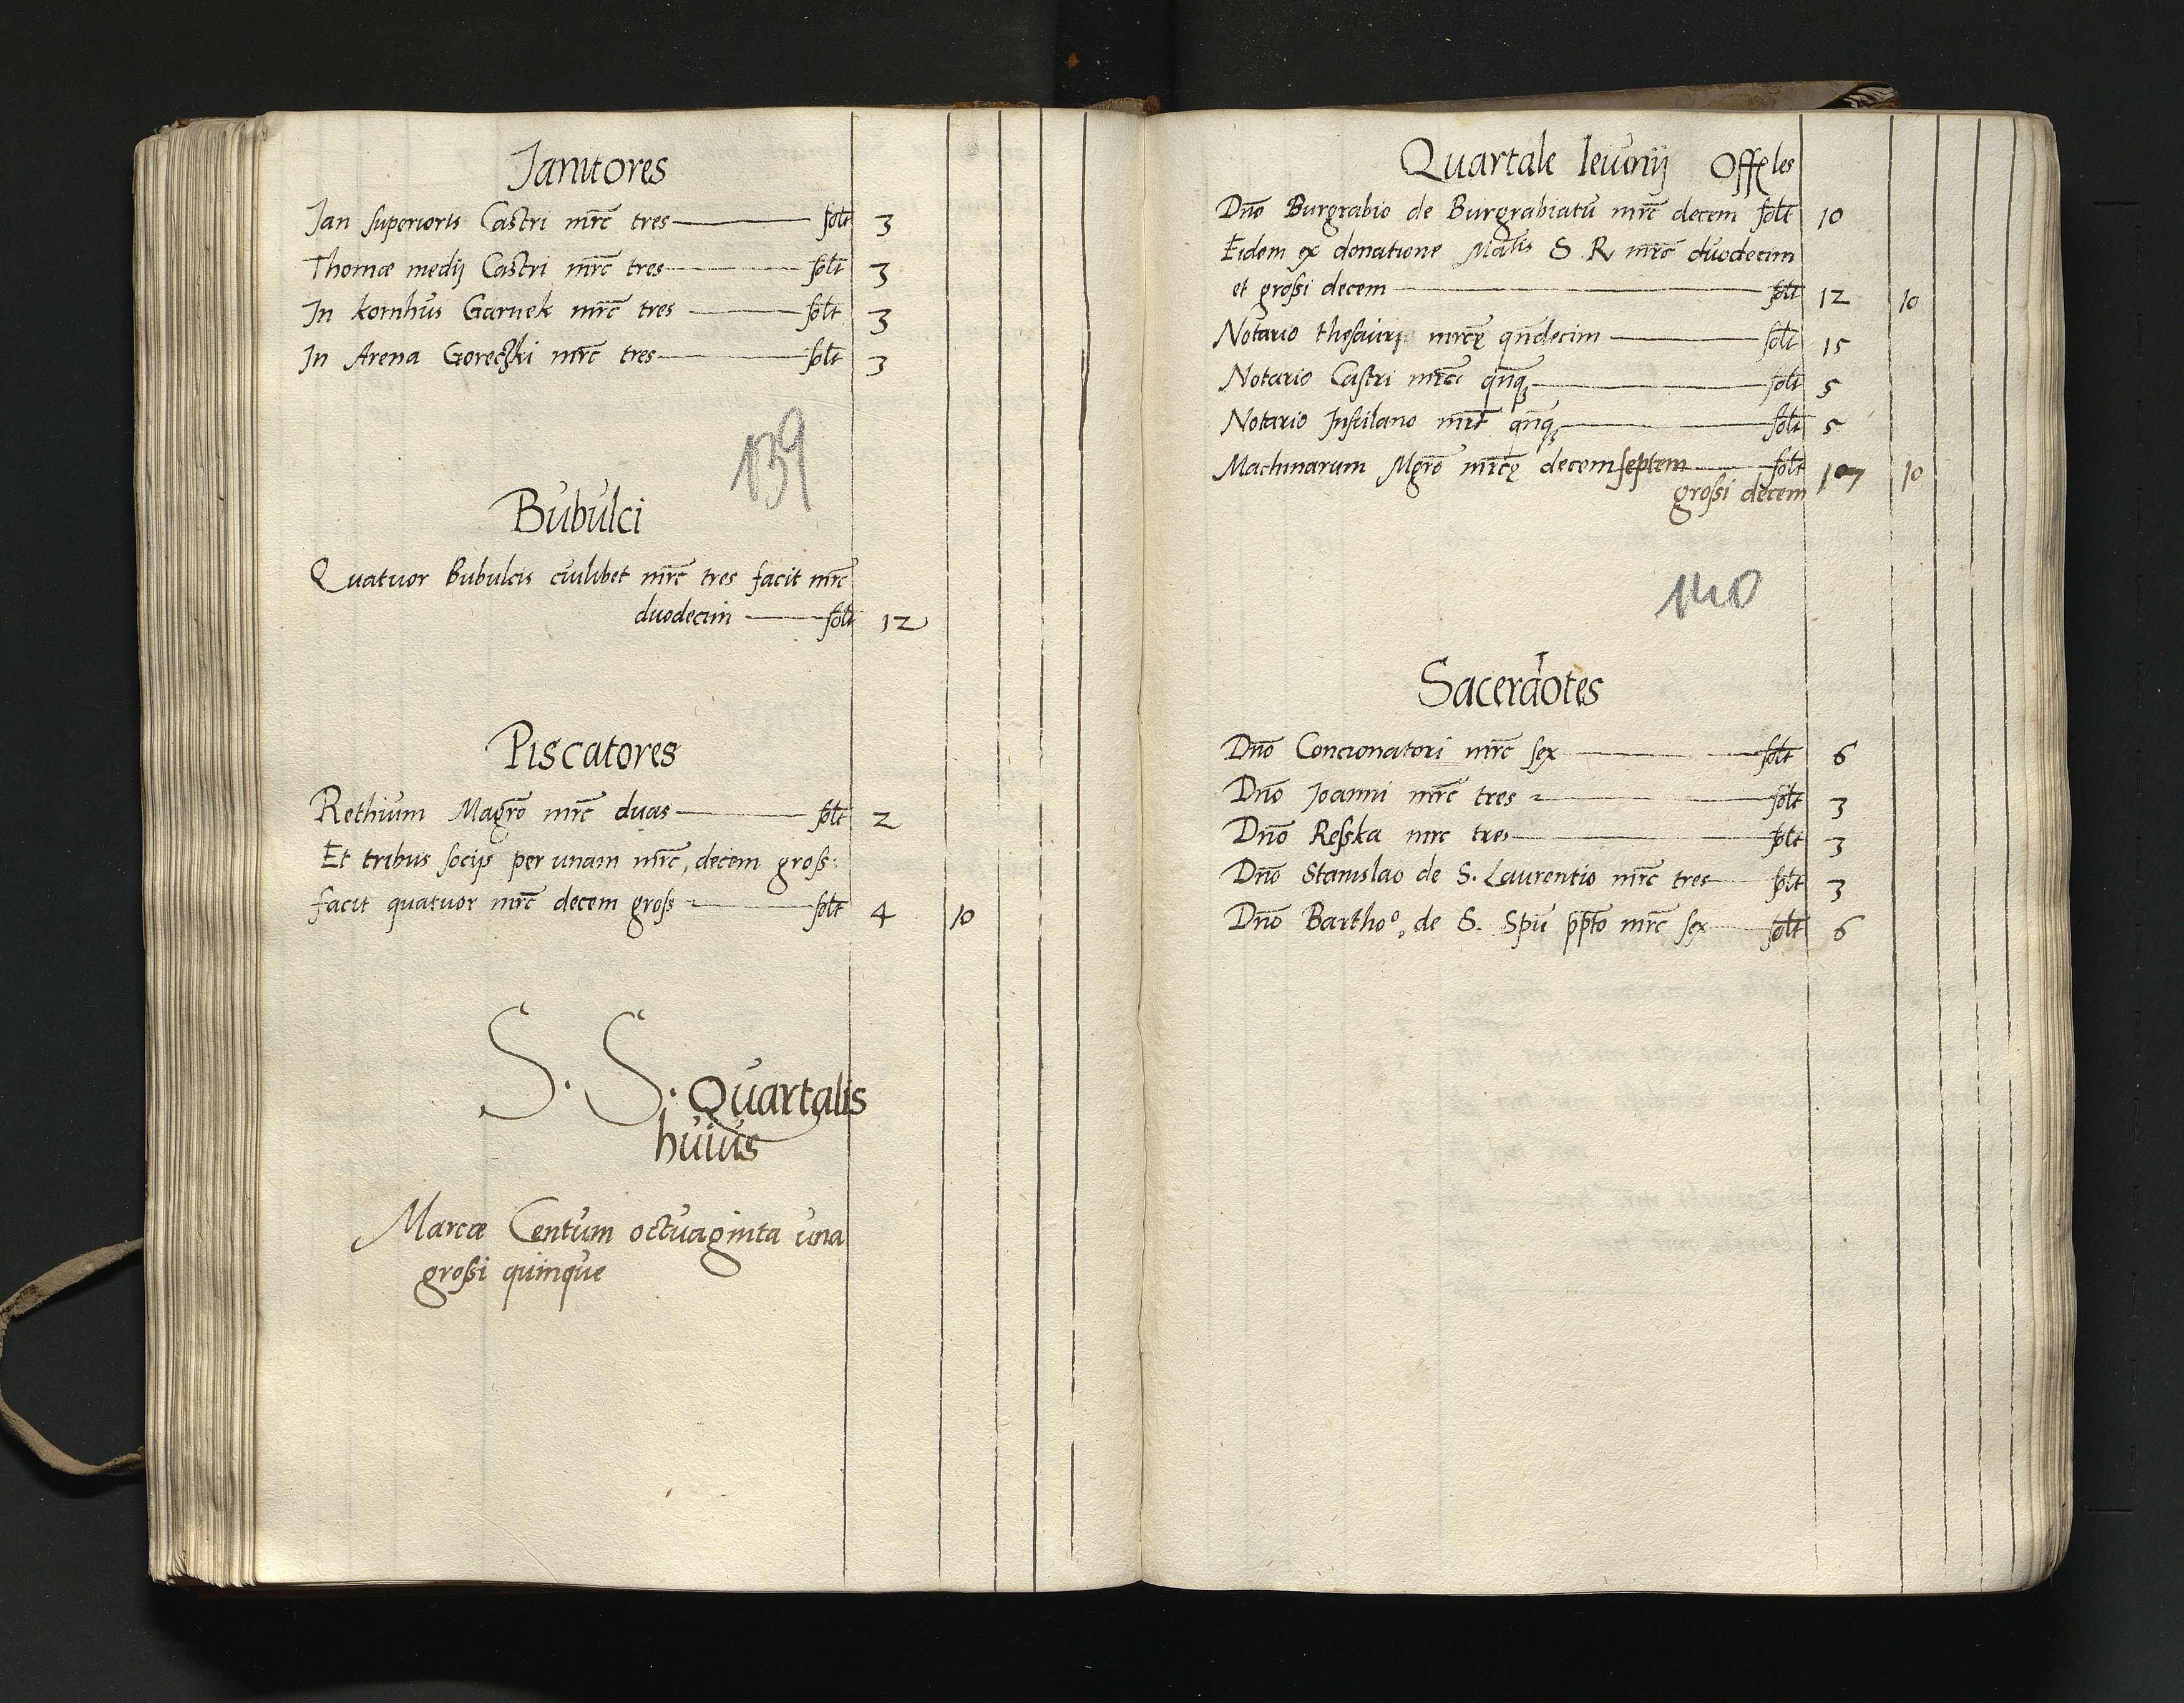 Janitores
Jan superioris Castri mrc̄ tres solt 3
Thomæ medij Castri mrc̄ tres solt 3
In kornhus Garnek mrc̄ tres solt 3
In Arena Goreczki mrc̄ tres solt 3
139
Bubulci
Quatuor Bubulcis cuilibet mrc̄ tres facit mrc̄
duodecim solt 12
Piscatores
Rethium Magrō mrc̄ duas solt 2
Et tribus socijs per unam mrc̄, decem gross:
facit quatuor mrc̄ decem gross solt 4 10
S. S. Quartalis
huius
Marcæ Centum octuaginta una
grossi quinque
Quartale Ieiunij Offles
Dnō Burgrabio de Burgrabiatu mrc̄ decem solt 10
Eidem ex donatione Matis S R mrc̄ duodecim
et grossi decem solt 12 10
Notario thesauri mrcę qndecim solt 15
Notario Castri mrc̄ qnq solt 5
Notario Insulano mrc̄ qnq solt 5
Machinarum Mgrō mrcę decem septem solt 10 10
grossi decem
140
Sacerdotes
Dnō Concionatori mrc̄ sex solt 6
Dnō Joanni mrc̄ tres solt 3
Dnō Resska mrc tres solt 3
Dnō Stanislao de S. Laurentio mrc̄ tres solt 3
Dnō Bartho° de S. Spū ppto mrc̄ sex solt 6